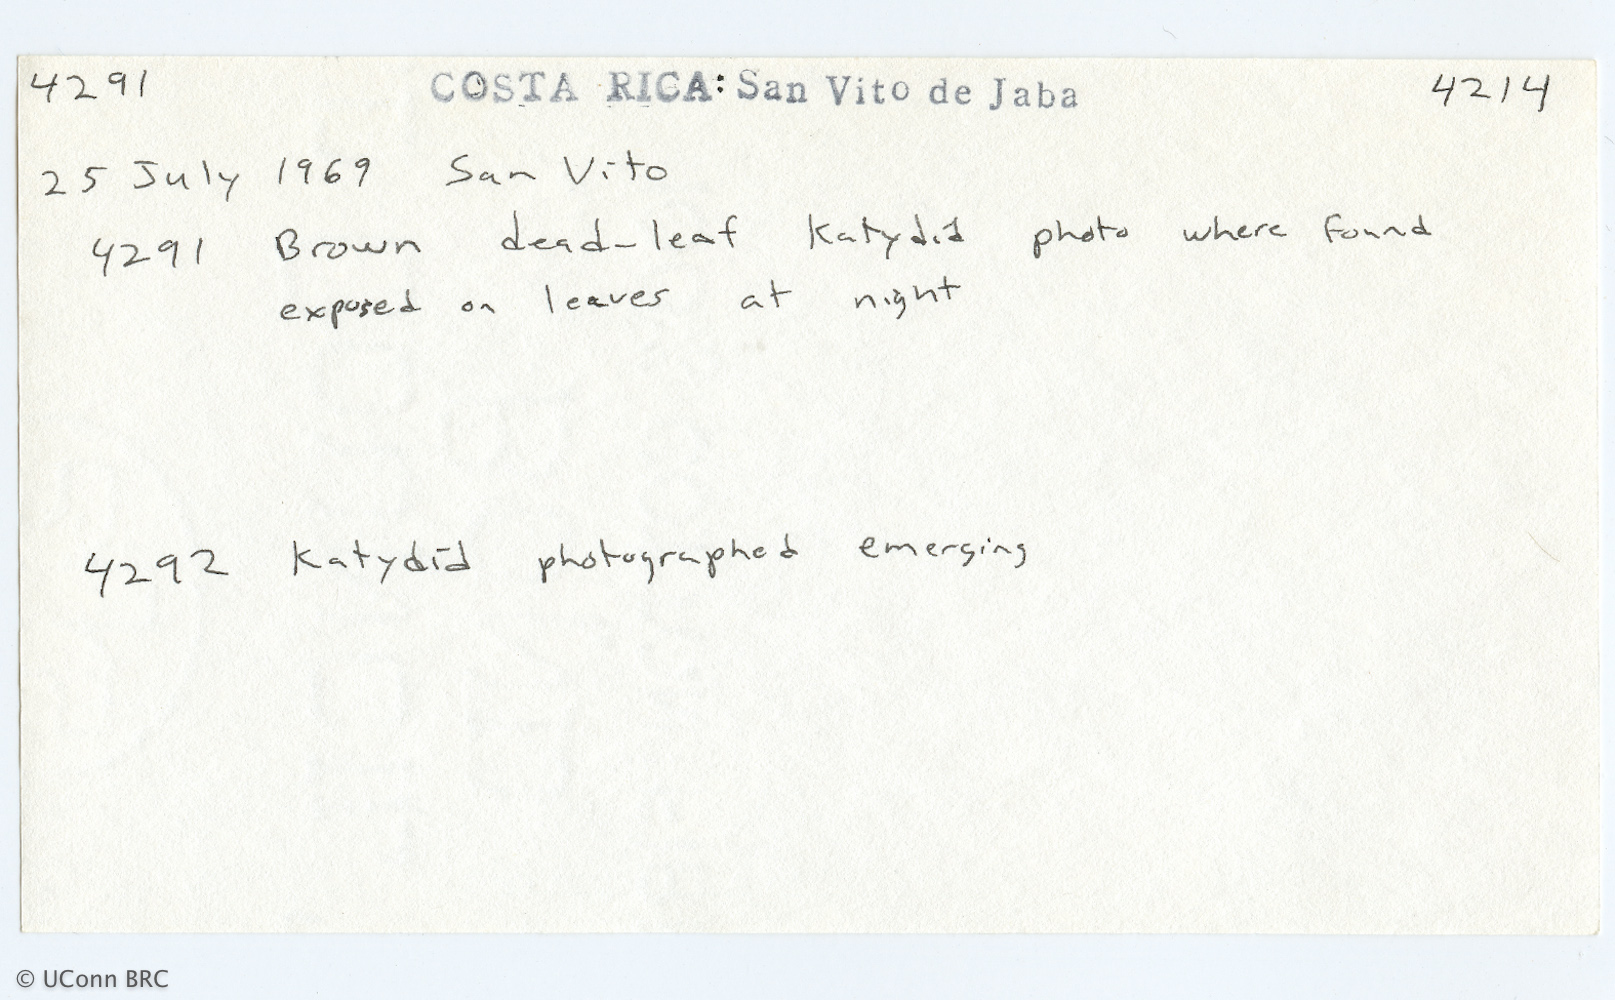 4291 COSTA RICA: San Vito de Jaba 4214
25 July 1969 San Vito
4291 Brown dead-leaf Katydid photo where found
exposed on leaves at night
4292 Katydid photographed emerging
© UConn BRC